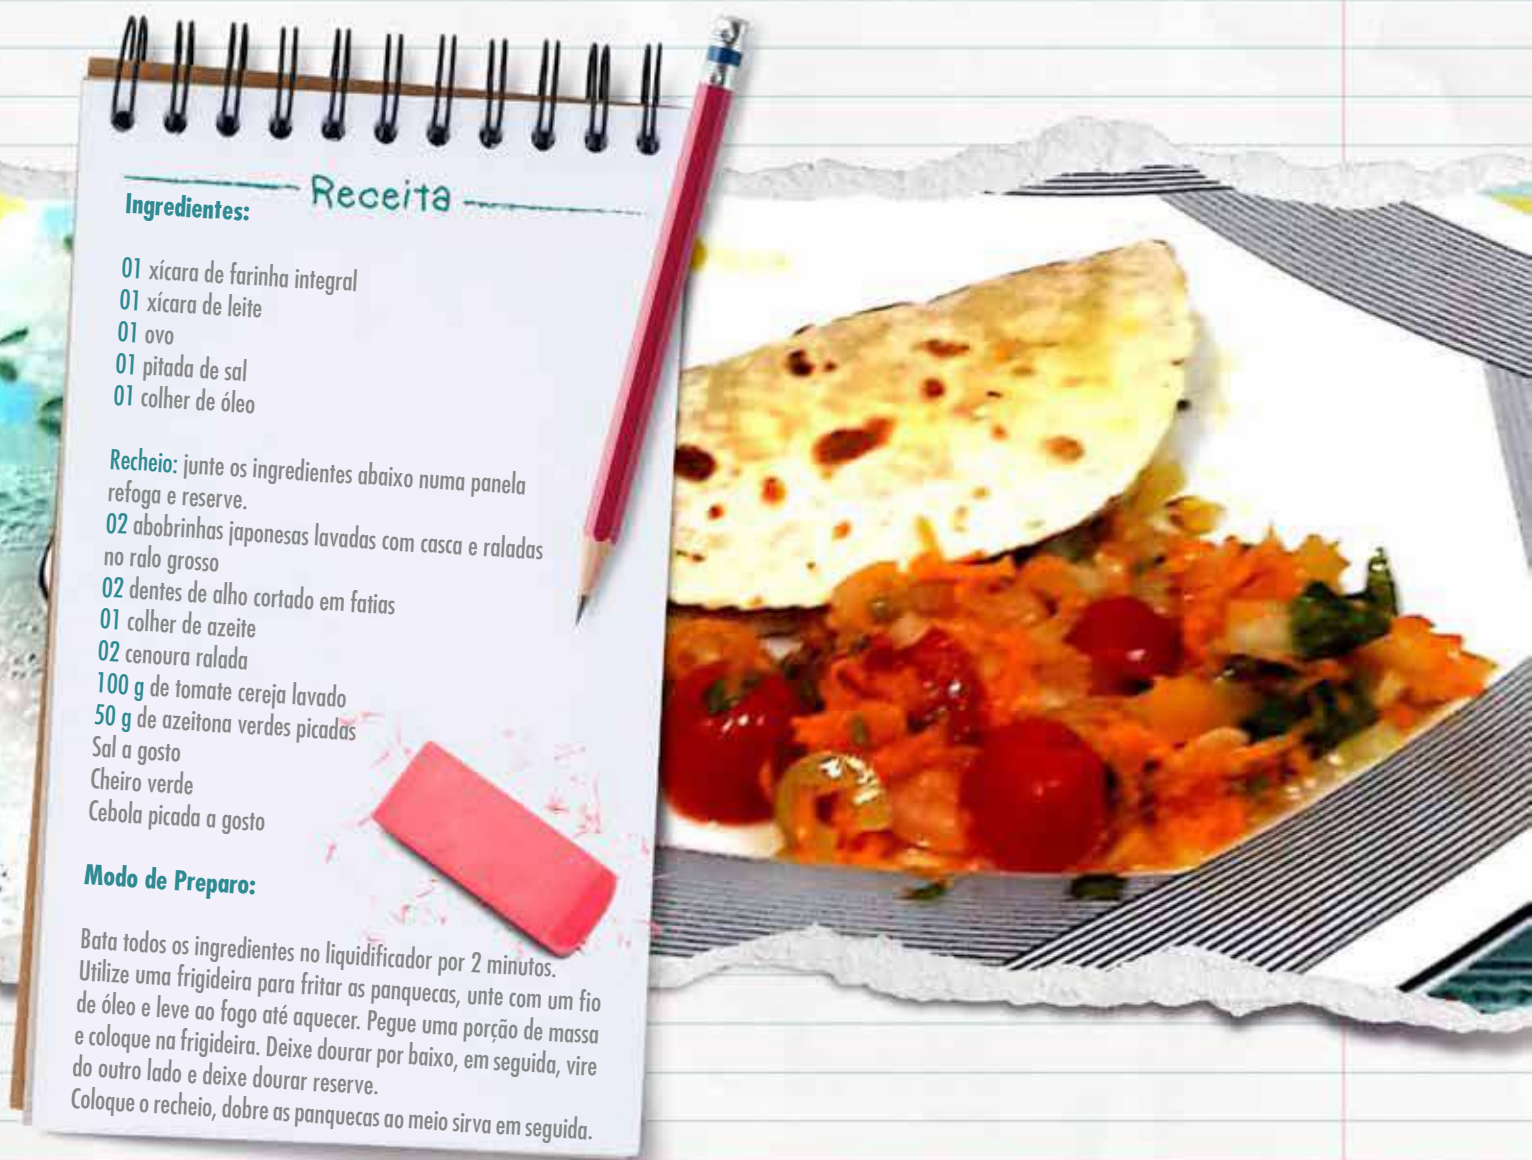 Receita
Ingredientes:
01 xícara de farinha integral
01 xícara de leite
01 ovo
01 pitada de sal
01 colher de óleo
Recheio: junte os ingredientes abaixo numa panela
refoga e reserve.
02 abobrinhas japonesas lavadas com casca e raladas
no ralo grosso
02 dentes de alho cortado em fatias
01 colher de azeite
02 cenoura ralada
100 g de tomate cereja lavado
50 g de azeitona verdes picadas
Sal a gosto
Cheiro verde
Cebola picada a gosto
Modo de Preparo:
Bata todos os ingredientes no liquidificador por 2 minutos.
Utilize uma frigideira para fritar as panquecas, unte com um fio
de óleo e leve ao fogo até aquecer. Pegue uma porção de massa
e coloque na frigideira. Deixe dourar por baixo, em seguida, vire
do outro lado e deixe dourar reserve.
Coloque o recheio, dobre as panquecas ao meio sirva em seguida.